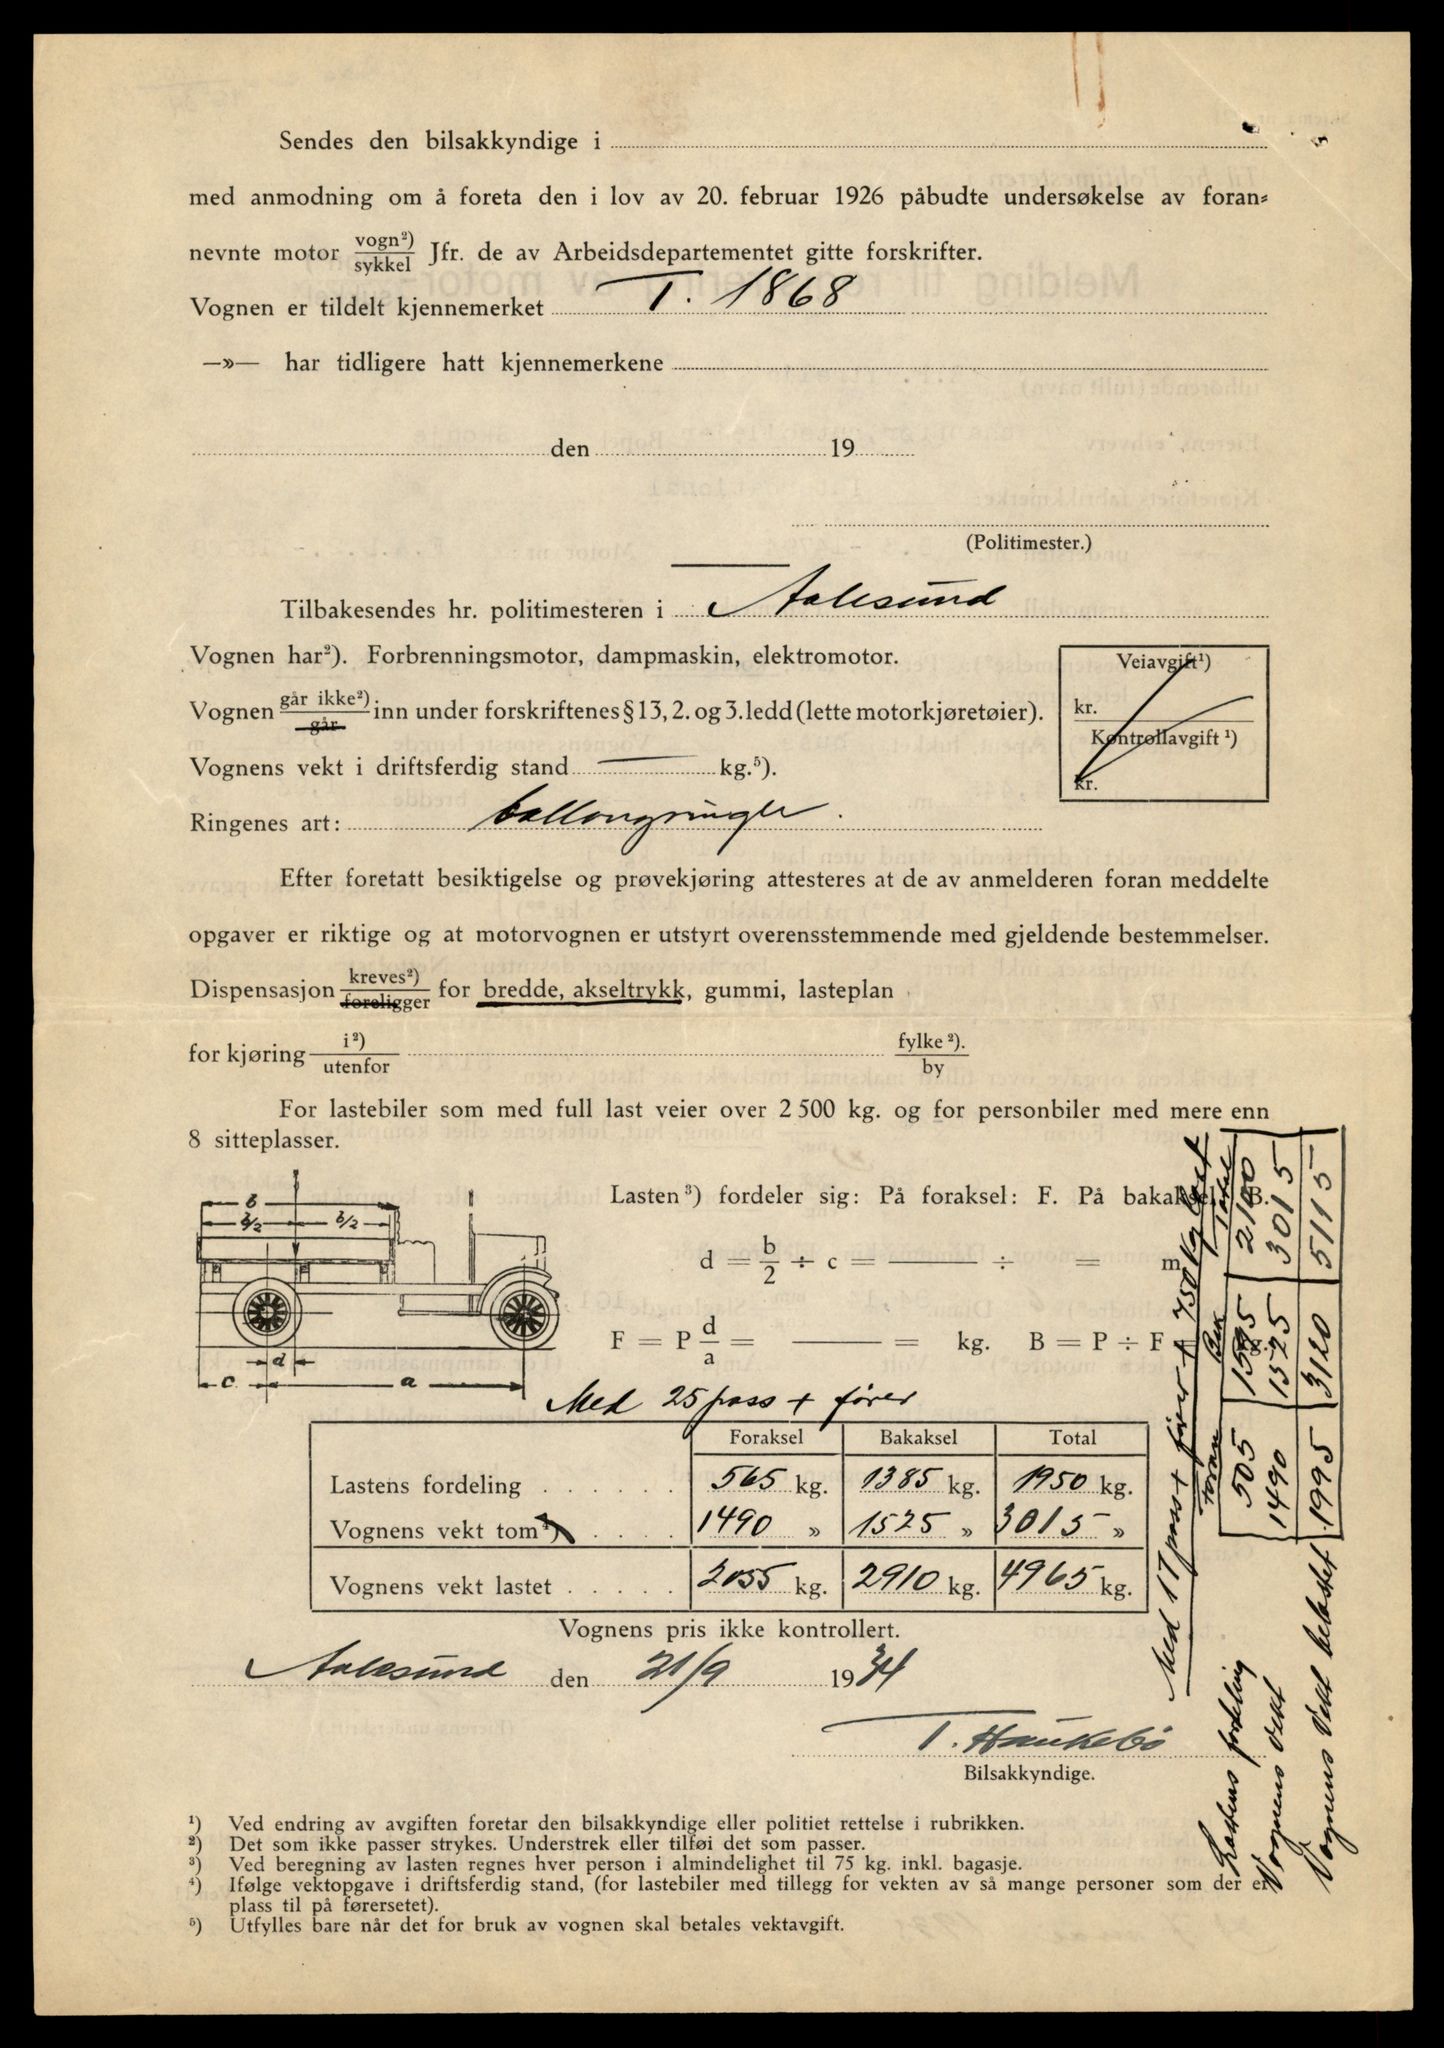 Sendes den bilsakkyndige i
med anmodning om å foreta den i lov av 20. februar 1926 påbudte undersøkelse av foran=
nevnte motor vogn²)/sykkel Jfr. de av Arbeidsdepartementet gitte forskrifter.
Vognen er tildelt kjennemerket T. 1868
—»— har tidligere hatt kjennemerkene
den 19
(Politimester.)
Tilbakesendes hr. politimesteren i Aalesund
Vognen har²). Forbrenningsmotor, dampmaskin, elektromotor.
Vognen går ikke²)/går inn under forskriftenes § 13, 2. og 3. ledd (lette motorkjøretøier).
Vognens vekt i driftsferdig stand — kg.⁵).
Ringenes art: ballongringer.
Veiavgift¹)
kr.
Kontrollavgift ¹)
kr.
Efter foretatt besiktigelse og prøvekjøring attesteres at de av anmelderen foran meddelte
opgaver er riktige og at motorvognen er utstyrt overensstemmende med gjeldende bestemmelser.
Dispensasjon kreves²)/foreligger for bredde, akseltrykk, gummi, lasteplan
for kjøring i²)/utenfor fylke²)./by
For lastebiler som med full last veier over 2 500 kg. og for personbiler med mere enn
8 sitteplasser.
b
b/2 b/2
d
c a
Lasten³) fordeler sig: På foraksel: F. På bakaksel: B.
d = b/2 ÷ c = —— ÷ = m.
F = P d/a = —— = kg. B = P ÷ F = kg.
Med 25 pass + fører
Foraksel Bakaksel Total
Lastens fordeling . . . . . . 565 kg. 1385 kg. 1950 kg.
Vognens vekt tom⁴) . . . . 1490 » 1525 » 3015 »
Vognens vekt lastet . . . . . 2055 kg. 2910 kg. 4965 kg.
Vognens pris ikke kontrollert.
Aalesund den 21/9 1934
T. Haukebø
Bilsakkyndige.
Med 17 pass + fører + 750 kg last
Foran Bak Total
Lastens fordeling 505 1595 2100
Vognens vekt 1490 1525 3015
Vognens vekt belastet 1995 3120 5115
¹) Ved endring av avgiften foretar den bilsakkyndige eller politiet rettelse i rubrikken.
²) Det som ikke passer strykes. Understrek eller tilføi det som passer.
³) Ved beregning av lasten regnes hver person i almindelighet til 75 kg. inkl. bagasje.
⁴) Ifølge vektopgave i driftsferdig stand, (for lastebiler med tillegg for vekten av så mange personer som der er
plass til på førersetet).
⁵) Utfylles bare når det for bruk av vognen skal betales vektavgift.